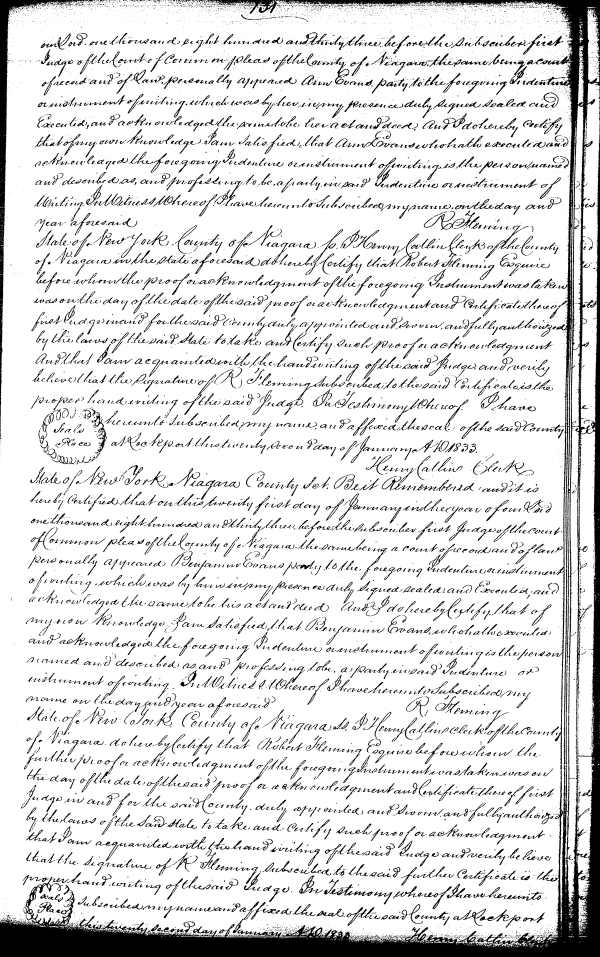 131
our Lord. one thousand eight hundred and thirty three, before the subscriber first
Judge of the Court of Common pleas of the County of Niagara, the same being a court
of record and of Law. personally appeared Ann Evans, party to the foregoing Indenture
or instrument of writing, which was by her in my presence duly signed sealed and
Executed, and acknowledged the same to be her act and deed. And I do hereby certify
that of my own knowledge I am satisfied, that Ann Evans who hath executed and
acknowledged the foregoing Indenture or instrument of writing, is the person, named
and described as, and professing to be, a party in said Indenture or instrument of
Writing In Witness, Whereof I have hereunto Subscribed, my name, on the day and
year aforesaid
R Fleming
State of New York, County of Niagara Ss. I Henry Catlin Clerk of the County
of Niagara in the state aforesaid do hereby Certify that Robert Fleming Esquire
before whom the proof or acknowledgment of the foregoing Instrument was taken
was on the day of the date of the said proof or acknowledgment and Certificate thereof
first Judge in and for the said County duly appointed and sworn, and fully authorized
by the laws of the said State to take and Certify such proof or acknowledgment
And that I am acquainted with the hand writing of the said Judge and verily
believe that the signature of R Fleming subscribed to the said Certificate is the
proper hand writing of the said Judge. In Testimony Whereof I have
Seals Place
hereunto subscribed my name, and affixed the seal of the said County
at Lockport this twenty second day of January A D 1833.
Henry Catlin Clerk
State of New York Niagara County Sct. Be it Remembered and it is
hereby Certified that on this twenty first day of January in the year of our Lord
one thousand eight hundred and thirty three, before the subscriber first Judge of the court
of Common pleas of the County of Niagara the same being a court of record and of law
personally appeared Benjamin Evans party to the foregoing Indenture or instrument
of writing which was by him in my presence duly signed sealed and Executed, and
acknowledged the same to be his act and deed And I do hereby Certify that of
my own knowledge I am satisfied, that Benjamin Evans, who hath executed
and acknowledged the foregoing Indenture or instrument of writing is the person
named and described as and professing to be, a party in said Indenture or
instrument of writing. In Witness Whereof I have hereunto Subscribed my
name on the day and year aforesaid
R Fleming
State of New York, County of Niagara Ss. I Henry Catlin clerk of the County
of Niagara do hereby Certify that Robert Fleming Esquire before whom the
further proof or acknowledgment of the foregoing Instrument was taken was on
the day of the date of the said proof or acknowledgment and Certificate thereof first
Judge in and for the said County duly appointed and sworn and fully authorized
by the laws of the said State to take and certify such proof or acknowledgment
that I am acquainted with the hand writing of the said Judge and verily believe
that the signature of R Fleming subscribed to the said further Certificate is the
proper hand writing of the said Judge. In Testimony whereof I have hereunto
Seals Place
Subscribed my name and affixed the seal of the said County at Lockport
this twenty second day of January A D 1833
Henry Catlin Clerk